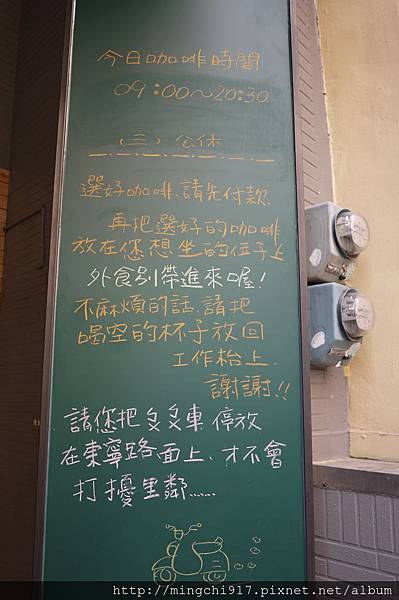 今日咖啡時間
09:00~20:30
(三)公休
選好咖啡.請先付款.
再把選好的咖啡
放在您想坐的位子上
外食別帶進來喔!
不麻煩的話.請把
喝空的杯子放回
工作枱上.
謝謝!!
請您把ㄆㄆ車停放
在東寧路面上、才不會
打擾里鄰......
http://mingchi917.pixnet.net/album